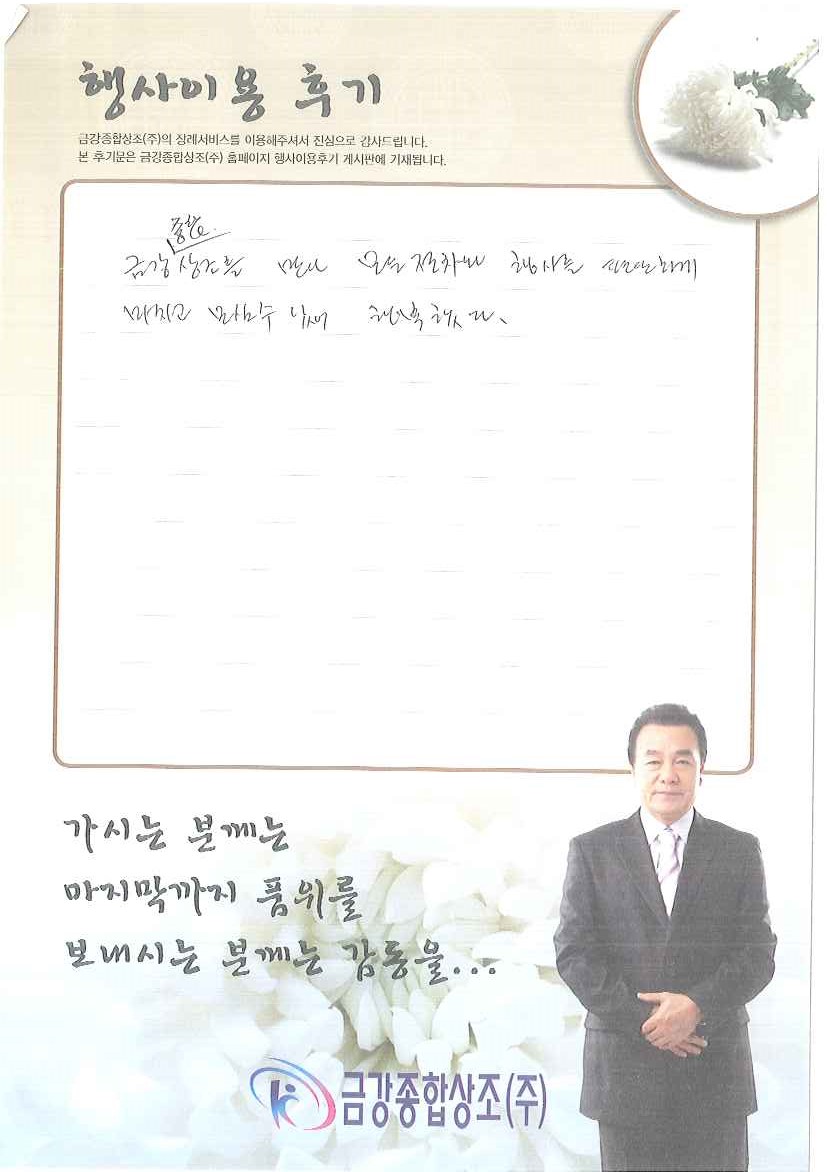 행사이용 후기
금강종합상조(주)의 장례서비스를 이용해주셔서 진심으로 감사드립니다.
본 후기문은 금강종합상조(주) 홈페이지 행사이용후기 게시판에 기재됩니다.
종합
금강 상조를 만나 모든 절차와 행사를 편안하게
마치고 모실수 있어 행복했다.
가시는 분께는
마지막까지 품위를
보내시는 분께는 감동을...
금강종합상조(주)